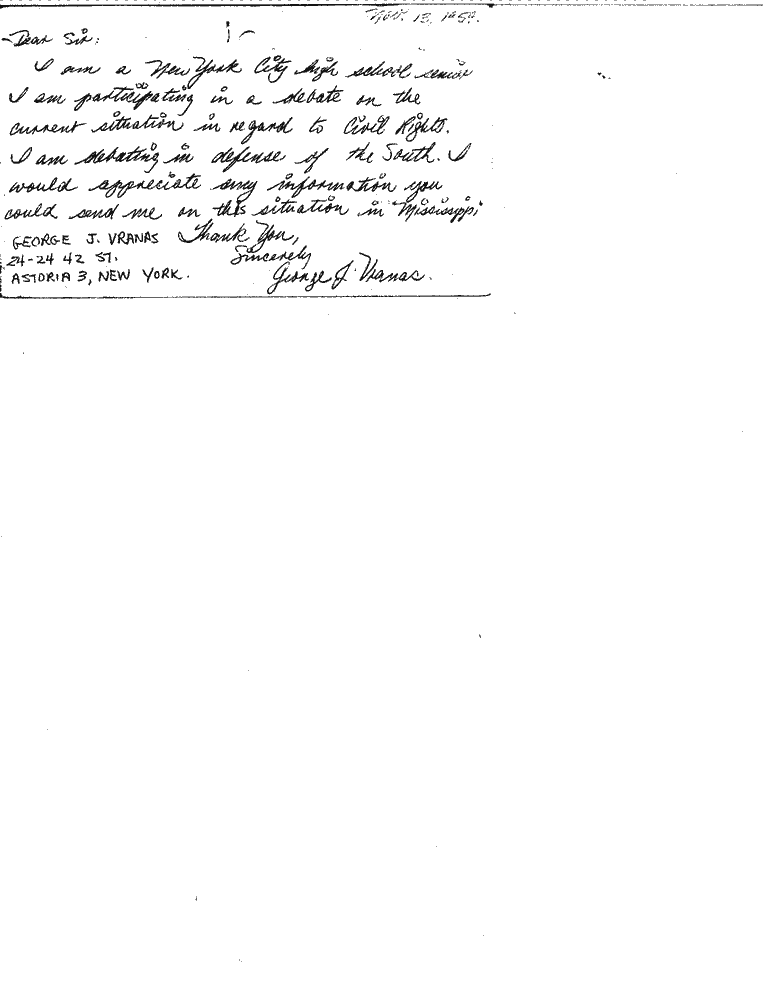 Nov. 13, 1959.
Dear Sir:
I am a New York City high school senior
I am participating in a debate on the
current situation in regard to Civil Rights.
I am debating in defense of the South. I
would appreciate any information you
could send me on this situation in Mississippi
GEORGE J. VRANAS Thank You,
24-24 42 ST. Sincerely
ASTORIA 3, NEW YORK. George J. Vranas.